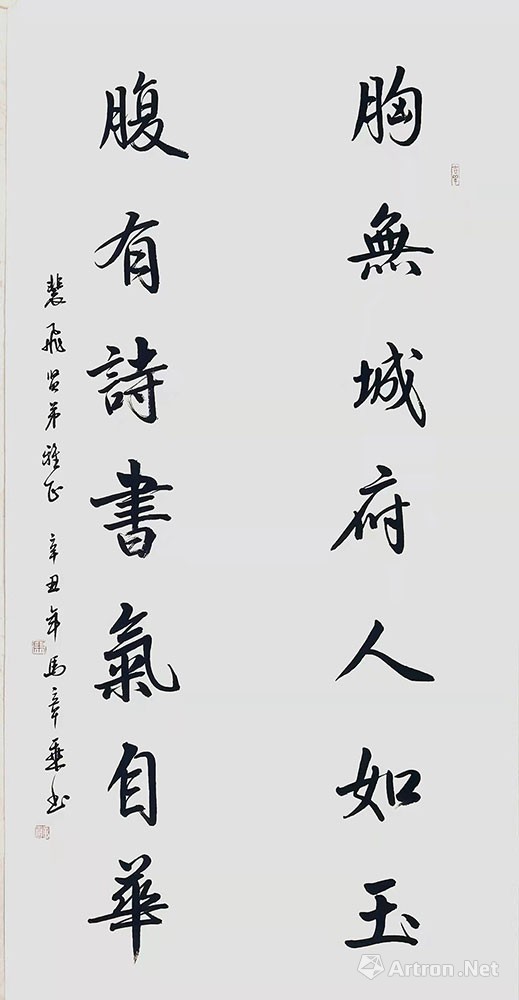 胸無城府人如玉
腹有詩書氣自華
裴飛贤弟雅正 辛丑年馬章乘书
Artron.Net